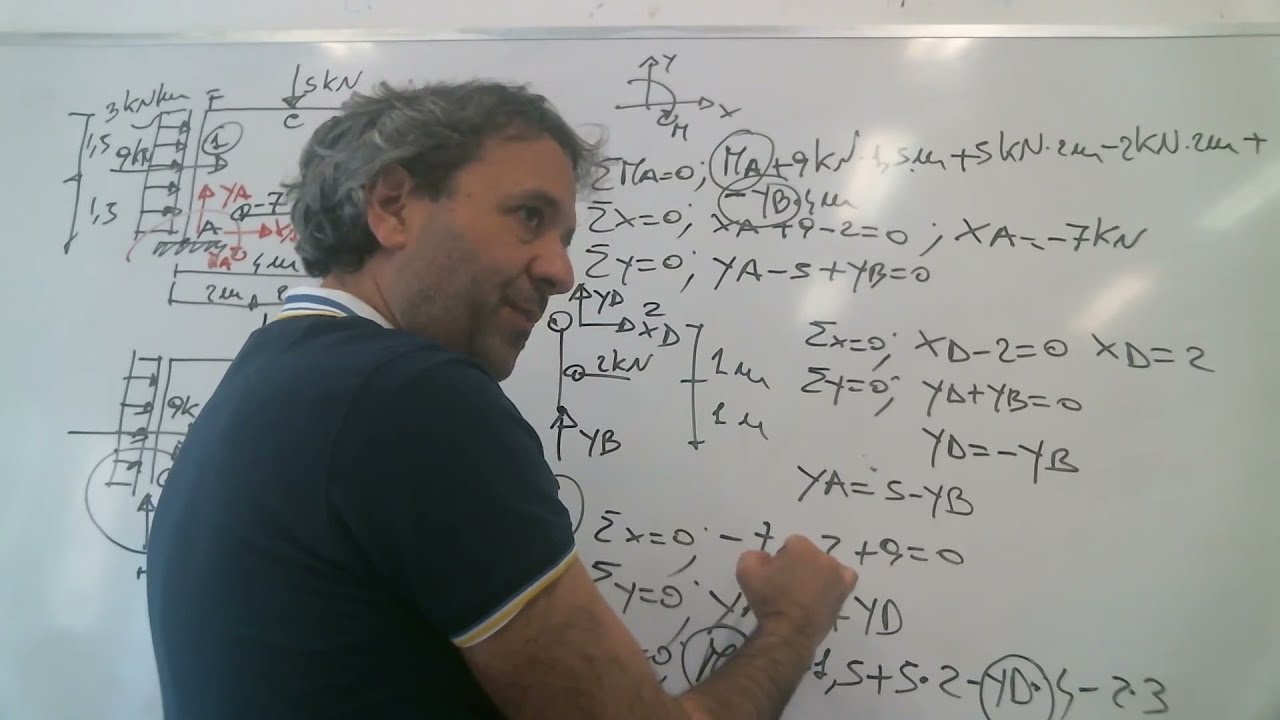 5kN
3kN/m F
C
1,5
9kN
1
D
YA
-7
1,3
A
4m
2m
9k
Y
X
M
ΣMA=0; MA+9kN·1,5m+5kN·2m-2kN·2m+
-YB·4m
ΣX=0; XA+9-2=0 ; XA=-7kN
ΣY=0; YA-5+YB=0
YD
2
XD
2kN
1m
1m
YB
ΣX=0; XD-2=0 XD=2
ΣY=0; YD+YB=0
YD=-YB
YA=5-YB
ΣX=0; -7 2+9=0
ΣY=0; +YD
=0; 1,5+5·2-YD·4-2·3